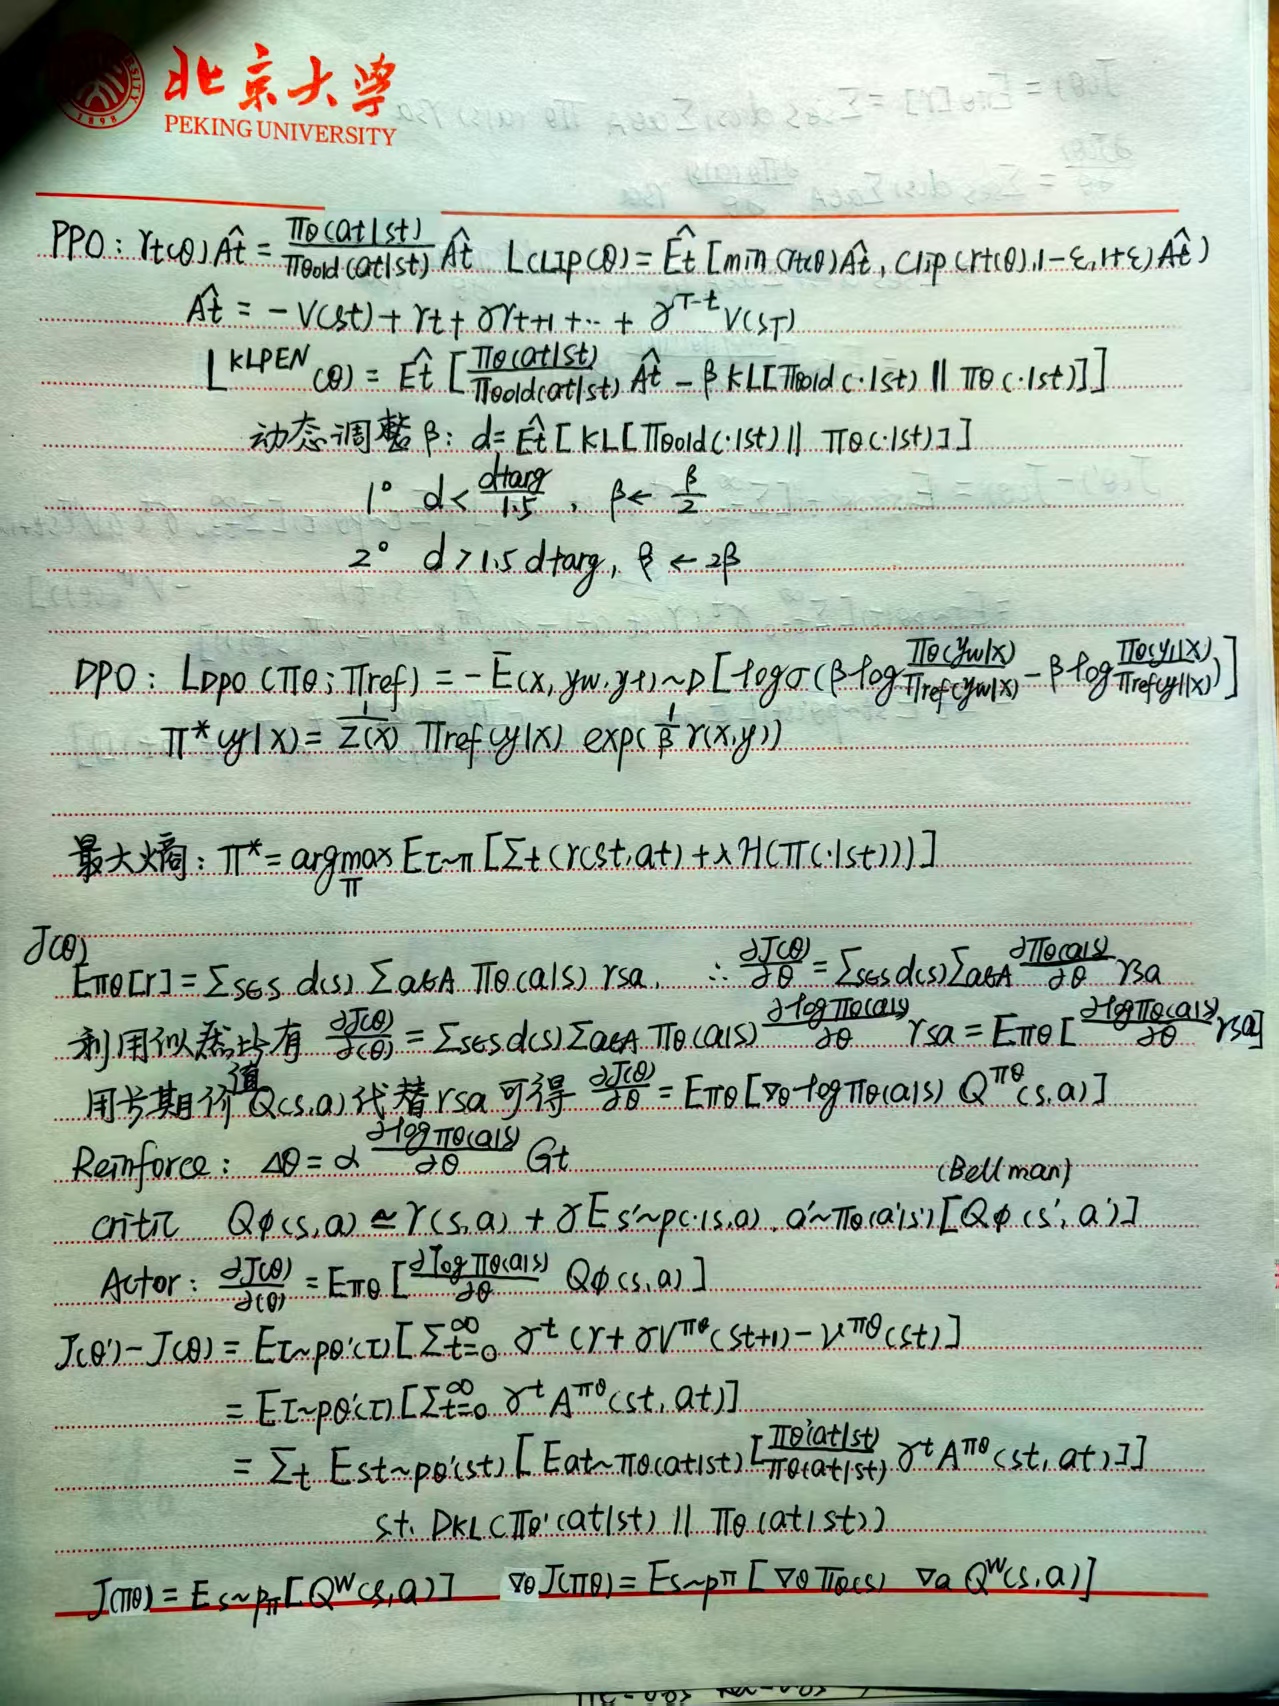 北京大学
PEKING UNIVERSITY
PPO: rt(θ)Ât = πθ(at|st)/πθold(at|st) Ât  LCLIP(θ) = Êt[min(rt(θ)Ât, clip(rt(θ),1-ε,1+ε)Ât)
Ât = -V(st) + rt + γrt+1 + ... + γ^T-t V(sT)
L^KLPEN(θ) = Êt[πθ(at|st)/πθold(at|st) Ât - β KL[πθold(·|st) || πθ(·|st)]]
动态调整β: d = Êt[KL[πθold(·|st) || πθ(·|st)]]
1° d < dtarg/1.5, β ← β/2
2° d > 1.5 dtarg, β ← 2β
DPO: LDPO(πθ; πref) = -E(x, yw, yl)~D[logσ(β log πθ(yw|x)/πref(yw|x) - β log πθ(yl|x)/πref(yl|x))]
π*(y|x) = 1/Z(x) πref(y|x) exp(1/β r(x,y))
最大熵: π* = argmax_π Eτ~π[Σt(r(st,at) + λH(π(·|st)))]
J(θ)
Eπθ[r] = Σs∈S d(s) Σa∈A πθ(a|s) rsa, ∴ ∂J(θ)/∂θ = Σs∈S d(s) Σa∈A ∂πθ(a|s)/∂θ rsa
利用似然比有 ∂J(θ)/∂(θ) = Σs∈S d(s) Σa∈A πθ(a|s) ∂logπθ(a|s)/∂θ rsa = Eπθ[∂logπθ(a|s)/∂θ rsa]
用长期价值Q(s,a)代替rsa可得 ∂J(θ)/∂θ = Eπθ[∇θ logπθ(a|s) Q^πθ(s,a)]
Reinforce: Δθ = α ∂logπθ(a|s)/∂θ Gt
(Bellman)
critic Qφ(s,a) ≃ r(s,a) + γEs'~p(·|s,a), a'~πθ(a'|s')[Qφ(s',a')]
Actor: ∂J(θ)/∂(θ) = Eπθ[∂logπθ(a|s)/∂θ Qφ(s,a)]
J(θ')-J(θ) = Eτ~pθ'(τ)[Σ^∞_t=0 γ^t(r + γV^πθ(st+1) - V^πθ(st)]
= Eτ~pθ'(τ)[Σ^∞_t=0 γ^t A^πθ(st, at)]
= Σt Est~pθ'(st)[Eat~πθ(at|st)[πθ'(at|st)/πθ(at|st) γ^t A^πθ(st, at)]]
st. DKL(πθ'(at|st) || πθ(at|st))
J(πθ) = Es~ρπ[Q^w(s,a)]  ∇θJ(πθ) = Es~ρπ[∇θπθ(s) ∇aQ^w(s,a)]